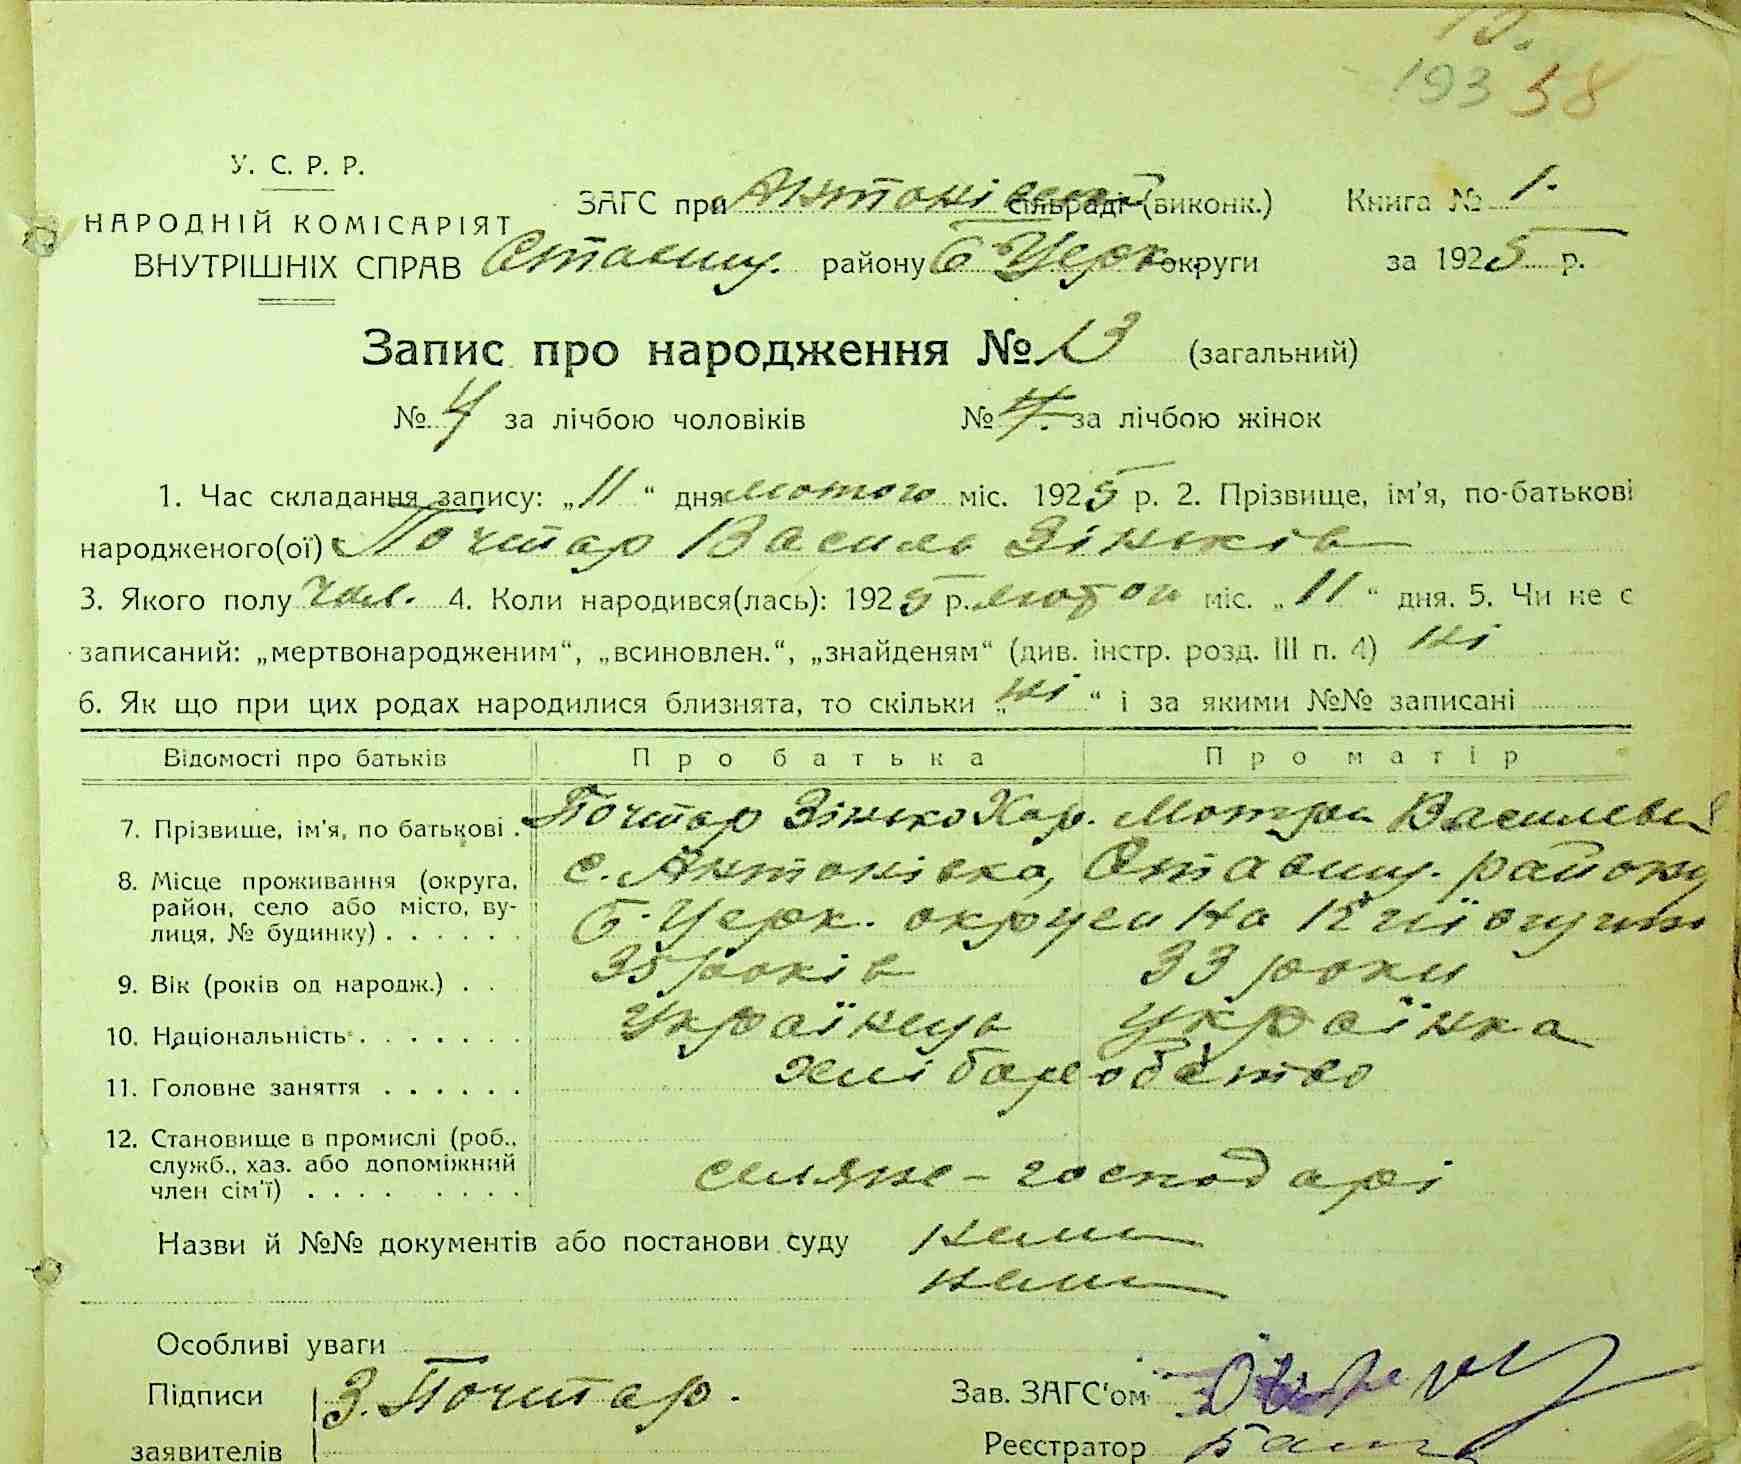 193 58
У. С. Р. Р.
НАРОДНІЙ КОМІСАРІЯТ
ВНУТРІШНІХ СПРАВ
ЗАГС при Антонів сільраді (виконк.) Книга № 1.
Ставищ. району Б Церк. округи за 1925 р.
Запис про народження № 13 (загальний)
№ 4 за лічбою чоловіків № за лічбою жінок
1. Час складання запису: „11“ дня лютого міс. 1925 р. 2. Прізвище, ім'я, по-батькові
народженого(ої) Почтар Василь Зіньків
3. Якого полу чол. 4. Коли народився(лась): 1925 р. лютого міс. „11“ дня. 5. Чи не є
записаний: „мертвонародженим“, „всиновлен.“, „знайденям“ (див. інстр. розд. III п. 4) ні
6. Як що при цих родах народилися близнята, то скільки „ні“ і за якими №№ записані
Відомості про батьків Про батька Про матір
7. Прізвище, ім'я, по батькові . Почтар Зінько Хар. Мотря Василевна
8. Місце проживання (округа, район, село або місто, ву-
лиця, № будинку) . . . . . . с. Антонівка, Ставищ. району
Б. Церк. округи на Київщині
9. Вік (років од народж.) . . 35 років 33 роки
10. Національність . . . . . . . Українець Українка
11. Головне заняття . . . . . . хліборобство
12. Становище в промислі (роб., служб., хаз. або допоміжний
член сім'ї) . . . . . . . . селяне - господарі
Назви й №№ документів або постанови суду нема
нема
Особливі уваги
Підписи З. Почтар. Зав. ЗАГС'ом
заявителів Реєстратор